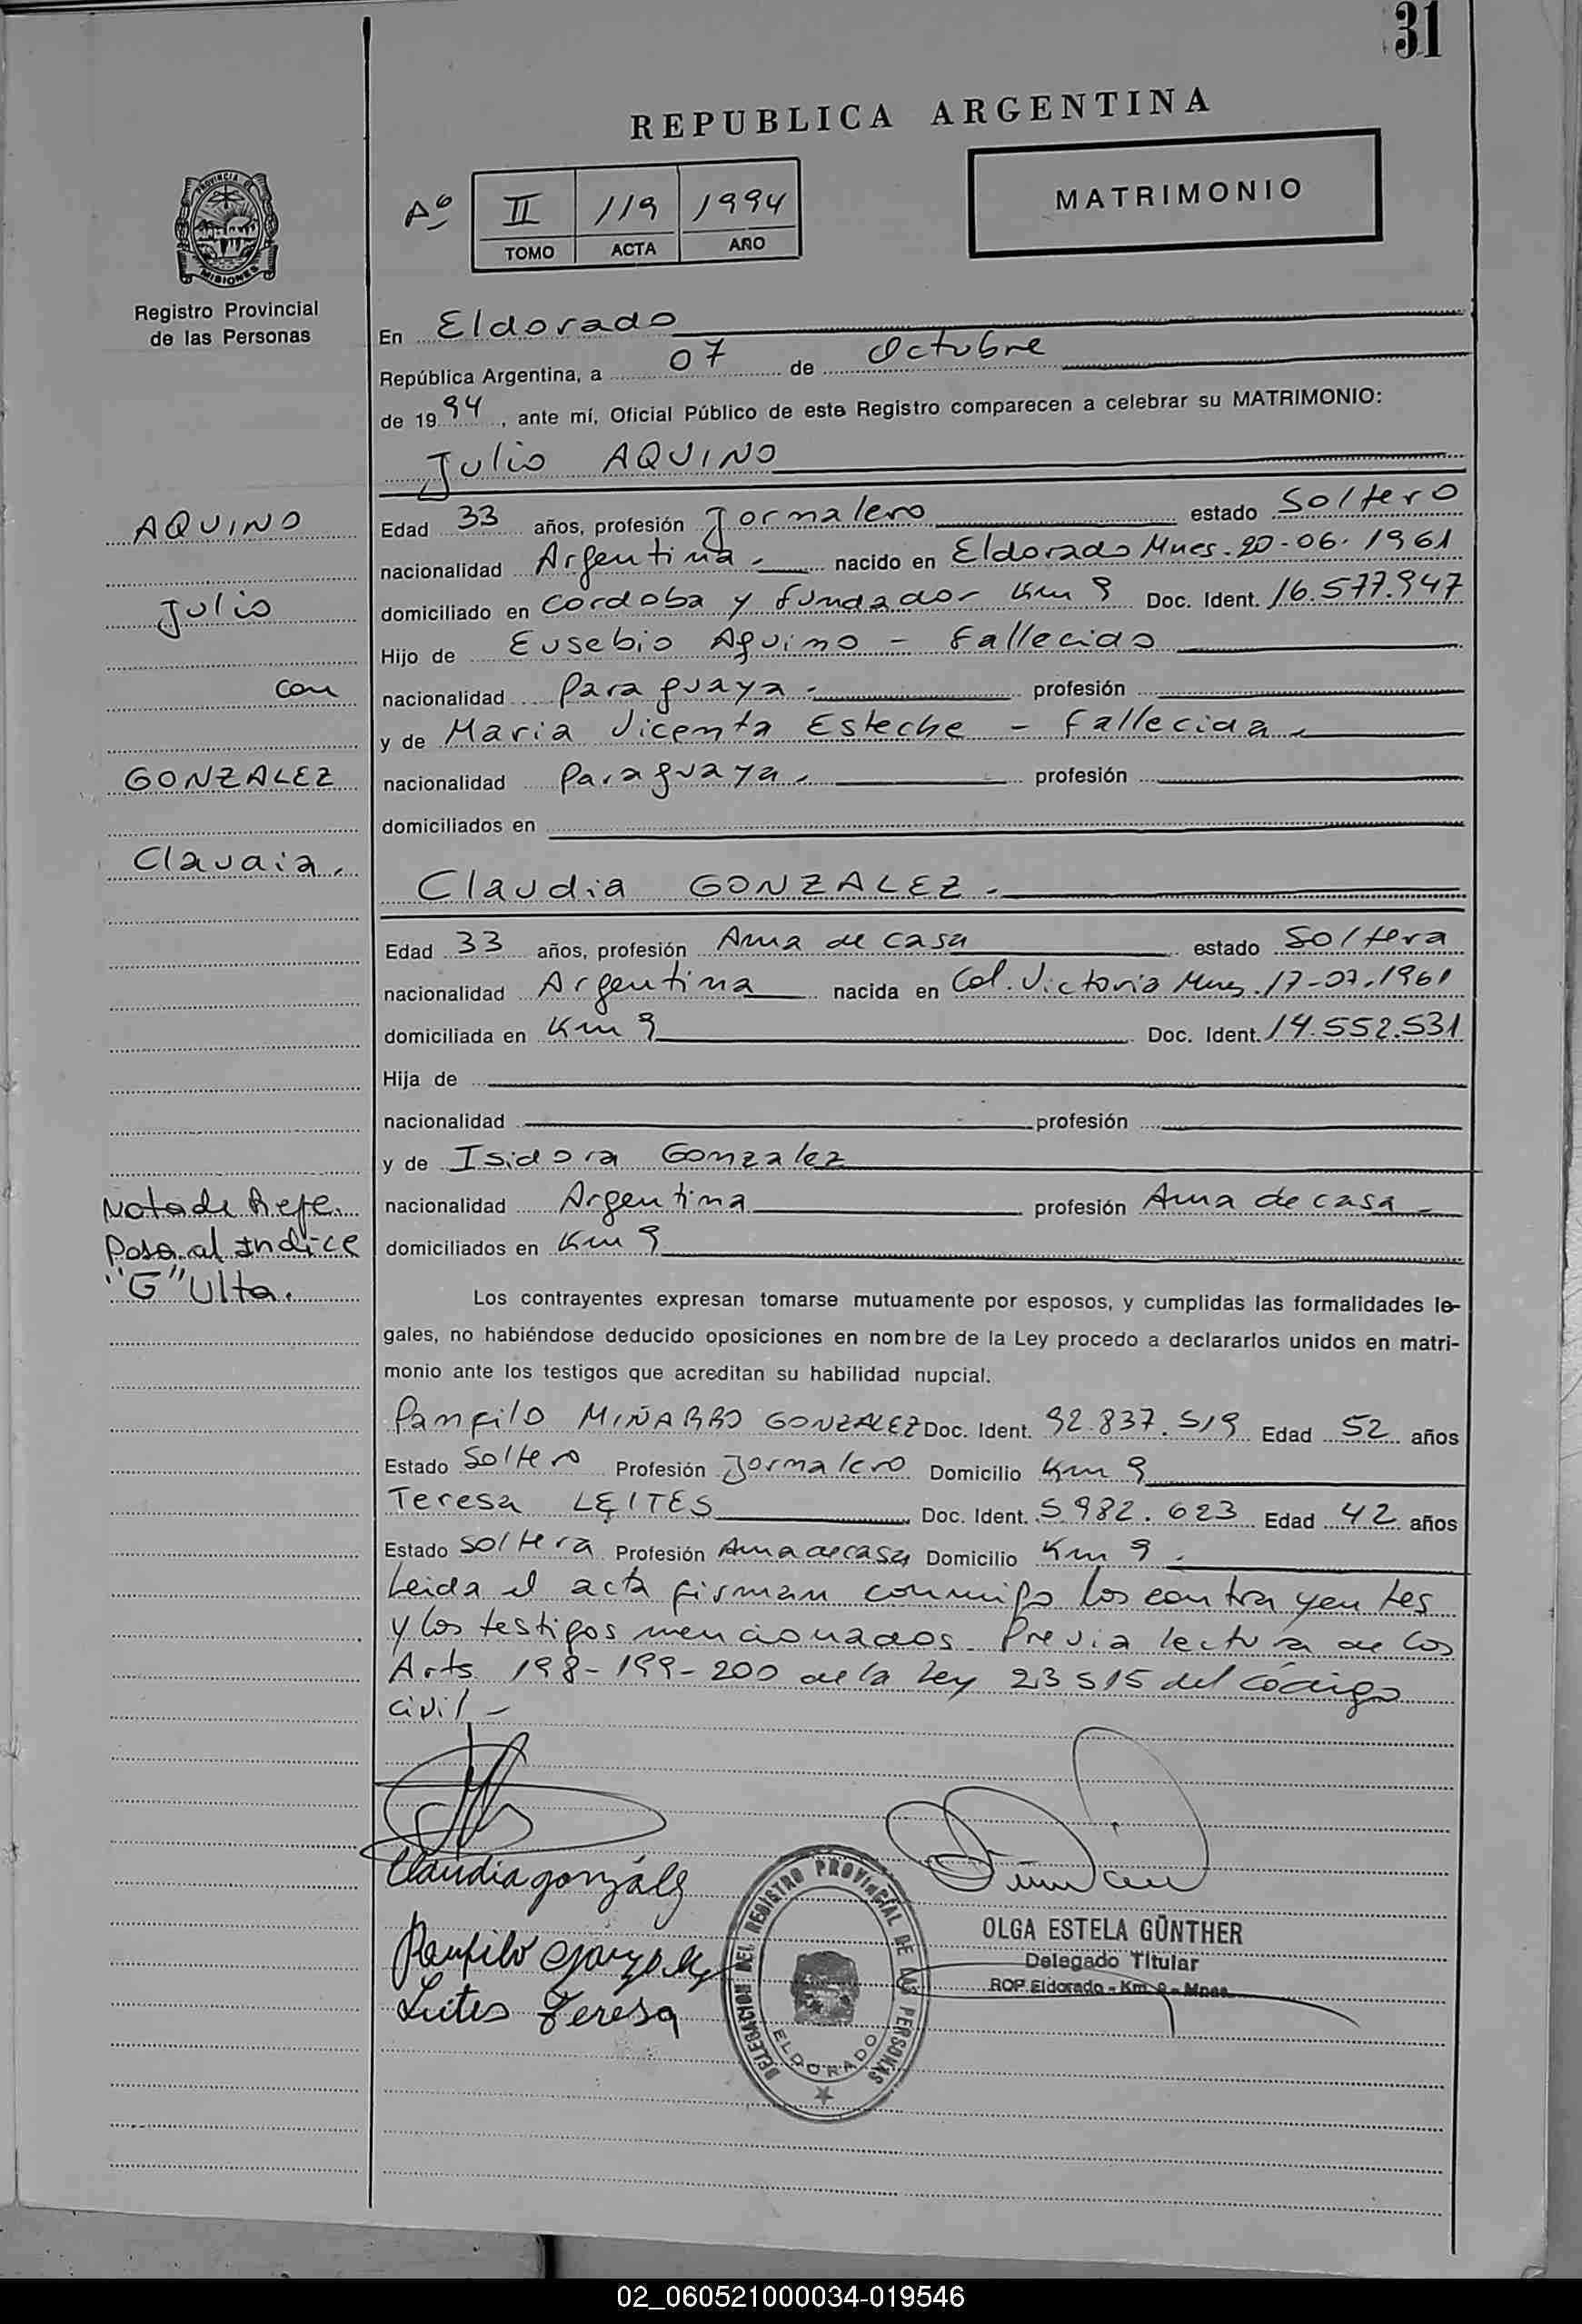 31
REPUBLICA ARGENTINA
Aº II 119 1994
TOMO ACTA AÑO
MATRIMONIO
PROVINCIA DE
MISIONES
Registro Provincial
de las Personas
En Eldorado
República Argentina, a 07 de Octubre
de 1994, ante mí, Oficial Público de este Registro comparecen a celebrar su MATRIMONIO:
Julio AQUINO
AQUINO
Julio
con
GONZALEZ
Claudia.
Edad 33 años, profesión Jornalero estado Soltero
nacionalidad Argentina.- nacido en Eldorado Mnes. 20-06-1961
domiciliado en Cordoba y fundador Km 9 Doc. Ident. 16.577.947
Hijo de Eusebio Aquino - Fallecido
nacionalidad Paraguaya.- profesión
y de Maria Vicenta Esteche - Fallecida.
nacionalidad Paraguaya. profesión
domiciliados en
Claudia GONZALEZ.-
Edad 33 años, profesión Ama de casa estado Soltera
nacionalidad Argentina nacida en Col. Victoria Mnes. 17-07-1961
domiciliada en Km 9 Doc. Ident. 14.552.531
Hija de
nacionalidad profesión
y de Isidora Gonzalez
nacionalidad Argentina profesión Ama de casa
domiciliados en Km 9
Nota de Refe.
Pasa al Indice
"G" Ulta.
Los contrayentes expresan tomarse mutuamente por esposos, y cumplidas las formalidades le-
gales, no habiéndose deducido oposiciones en nombre de la Ley procedo a declararlos unidos en matri-
monio ante los testigos que acreditan su habilidad nupcial.
Panfilo MIÑARRO GONZALEZ Doc. Ident. 92.837.519 Edad 52 años
Estado Soltero Profesión Jornalero Domicilio Km 9
Teresa LEITES Doc. Ident. 5.982.623 Edad 42 años
Estado Soltera Profesión Ama de casa Domicilio Km 9.
Leida el acta firman conmigo los contrayentes
y los testigos mencionados. Previa lectura de los
Arts 198-199-200 de la Ley 23515 del código
civil -
Claudia gonzález
Panfilo Gonzalez
Leites Teresa
DELEGACION DEL REGISTRO PROVINCIAL DE LAS PERSONAS
ELDORADO
OLGA ESTELA GÜNTHER
Delegado Titular
ROP. Eldorado - Km. 9 - Mnes.
02_060521000034-019546